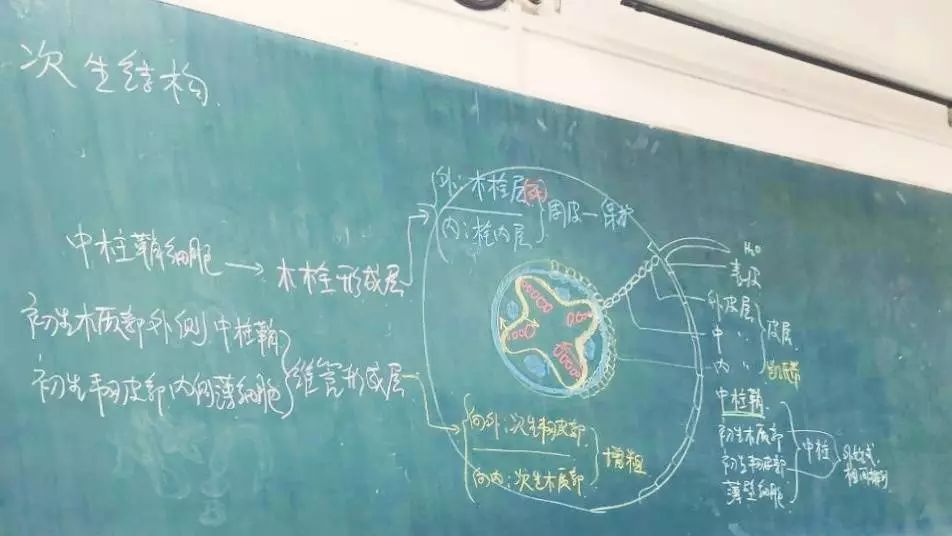 次生结构
外:木栓层(死)
内:栓内层
周皮—保护
中柱鞘细胞→木栓形成层
初生木质部外侧中柱鞘
初生韧皮部内侧薄细胞
维管形成层
向外:次生韧皮部
向内:次生木质部
增粗
H₂O
表皮
外皮层
中 〃
内 〃
皮层
凯氏带
中柱鞘
初生木质部
初生韧皮部
薄壁细胞
中柱
外始式
相间排列